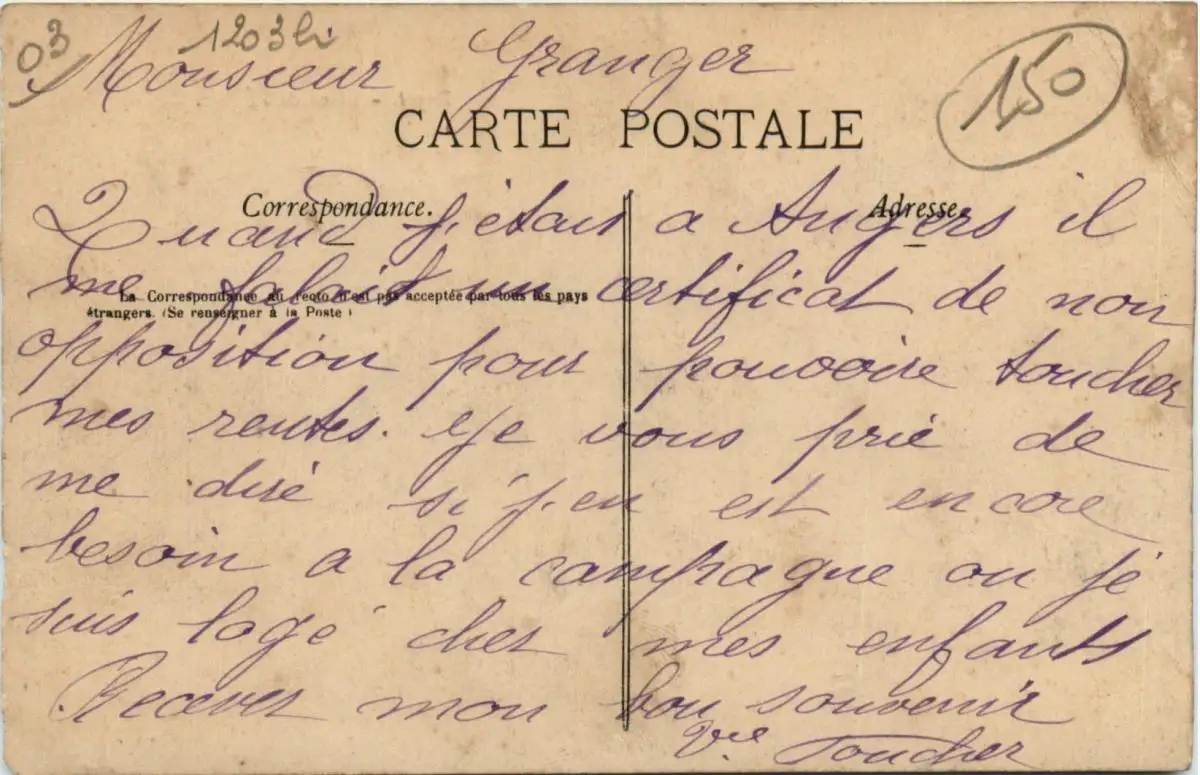 03 1203 bi
150
Monsieur Granger
CARTE POSTALE
Correspondance.
Adresse.
La Correspondance au recto n'est pas acceptée par tous les pays
étrangers. (Se renseigner à la Poste)
Quand j'étais a Angers il
me falait un certificat de non
opposition pour pouvoire toucher
mes rentes. Je vous prie de
me diré si j'en est encore
besoin a la campagne ou je
suis logé chez mes enfants
Recevez mon bon souvenir
Vve Toucher